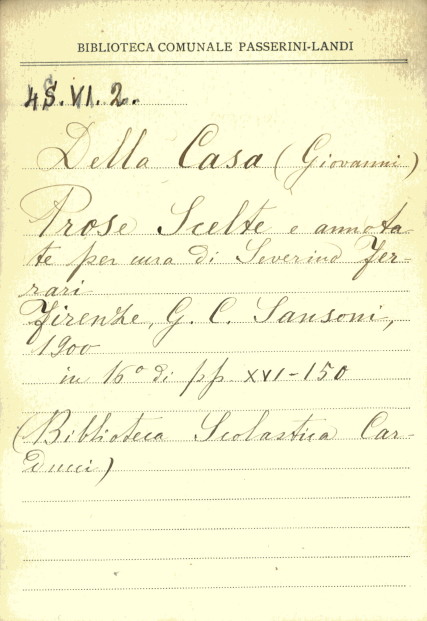 BIBLIOTECA COMUNALE PASSERINI-LANDI
4S.VI.2.
Della Casa (Giovanni)
Prose Scelte e annota-
te per cura di Severino Fer-
rari
Firenze, G. C. Sansoni,
1900
in 16° di pp XVI-150
(Biblioteca Scolastica Car-
ducci)